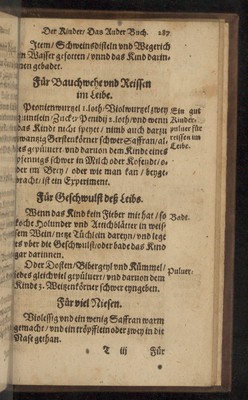 Der Kinder/ Das Ander Buch. 287
Item/ Schweinsdisteln vnd Wegerich
in Wasser gesotten/ vnnd das Kind darin-
nen gebadet.
Für Bauchwehe vnd Reissen
im Leibe.
Peonienwurtzel 1. loth/ Violwurtzel zwey
quintlein/ Zucker Penidij 2. loth/ vnd wenn
das Kind nicht speyet/ nimb auch darzu
zwantzig Gerstenkörner schwer Saffran/ al-
les gepülvert vnd darvon dem Kinde eines
pfennigs schwer in Milch oder Kofendt/ o-
der im Brey/ oder wie man kan/ beyge-
bracht/ ist ein Experiment.
Ein gut
Kinder-
puluer für
reissen im
Leibe.
Für Geschwulst deß Leibs.
Wenn das Kind kein Fieber mit hat/ so
koche Holunder vnd Attichblätter in weis-
sem Wein/ netze Tüchlein dareyn/ vnd lege
es vber die Geschwulst/ oder bade das Kind
gar darinnen.
Badt.
Oder Dosten/ Bibergeyl vnd Kümmel/
jedes gleich viel gepülvert/ vnd darvon dem
Kinde 3. Weitzenkörner schwer eyngeben.
Puluer.
Für viel Niesen.
Violessig vnd ein wenig Saffran warm
gemacht/ vnd ein tröpfflein oder zwey in die
Nase gethan.
T iii Für